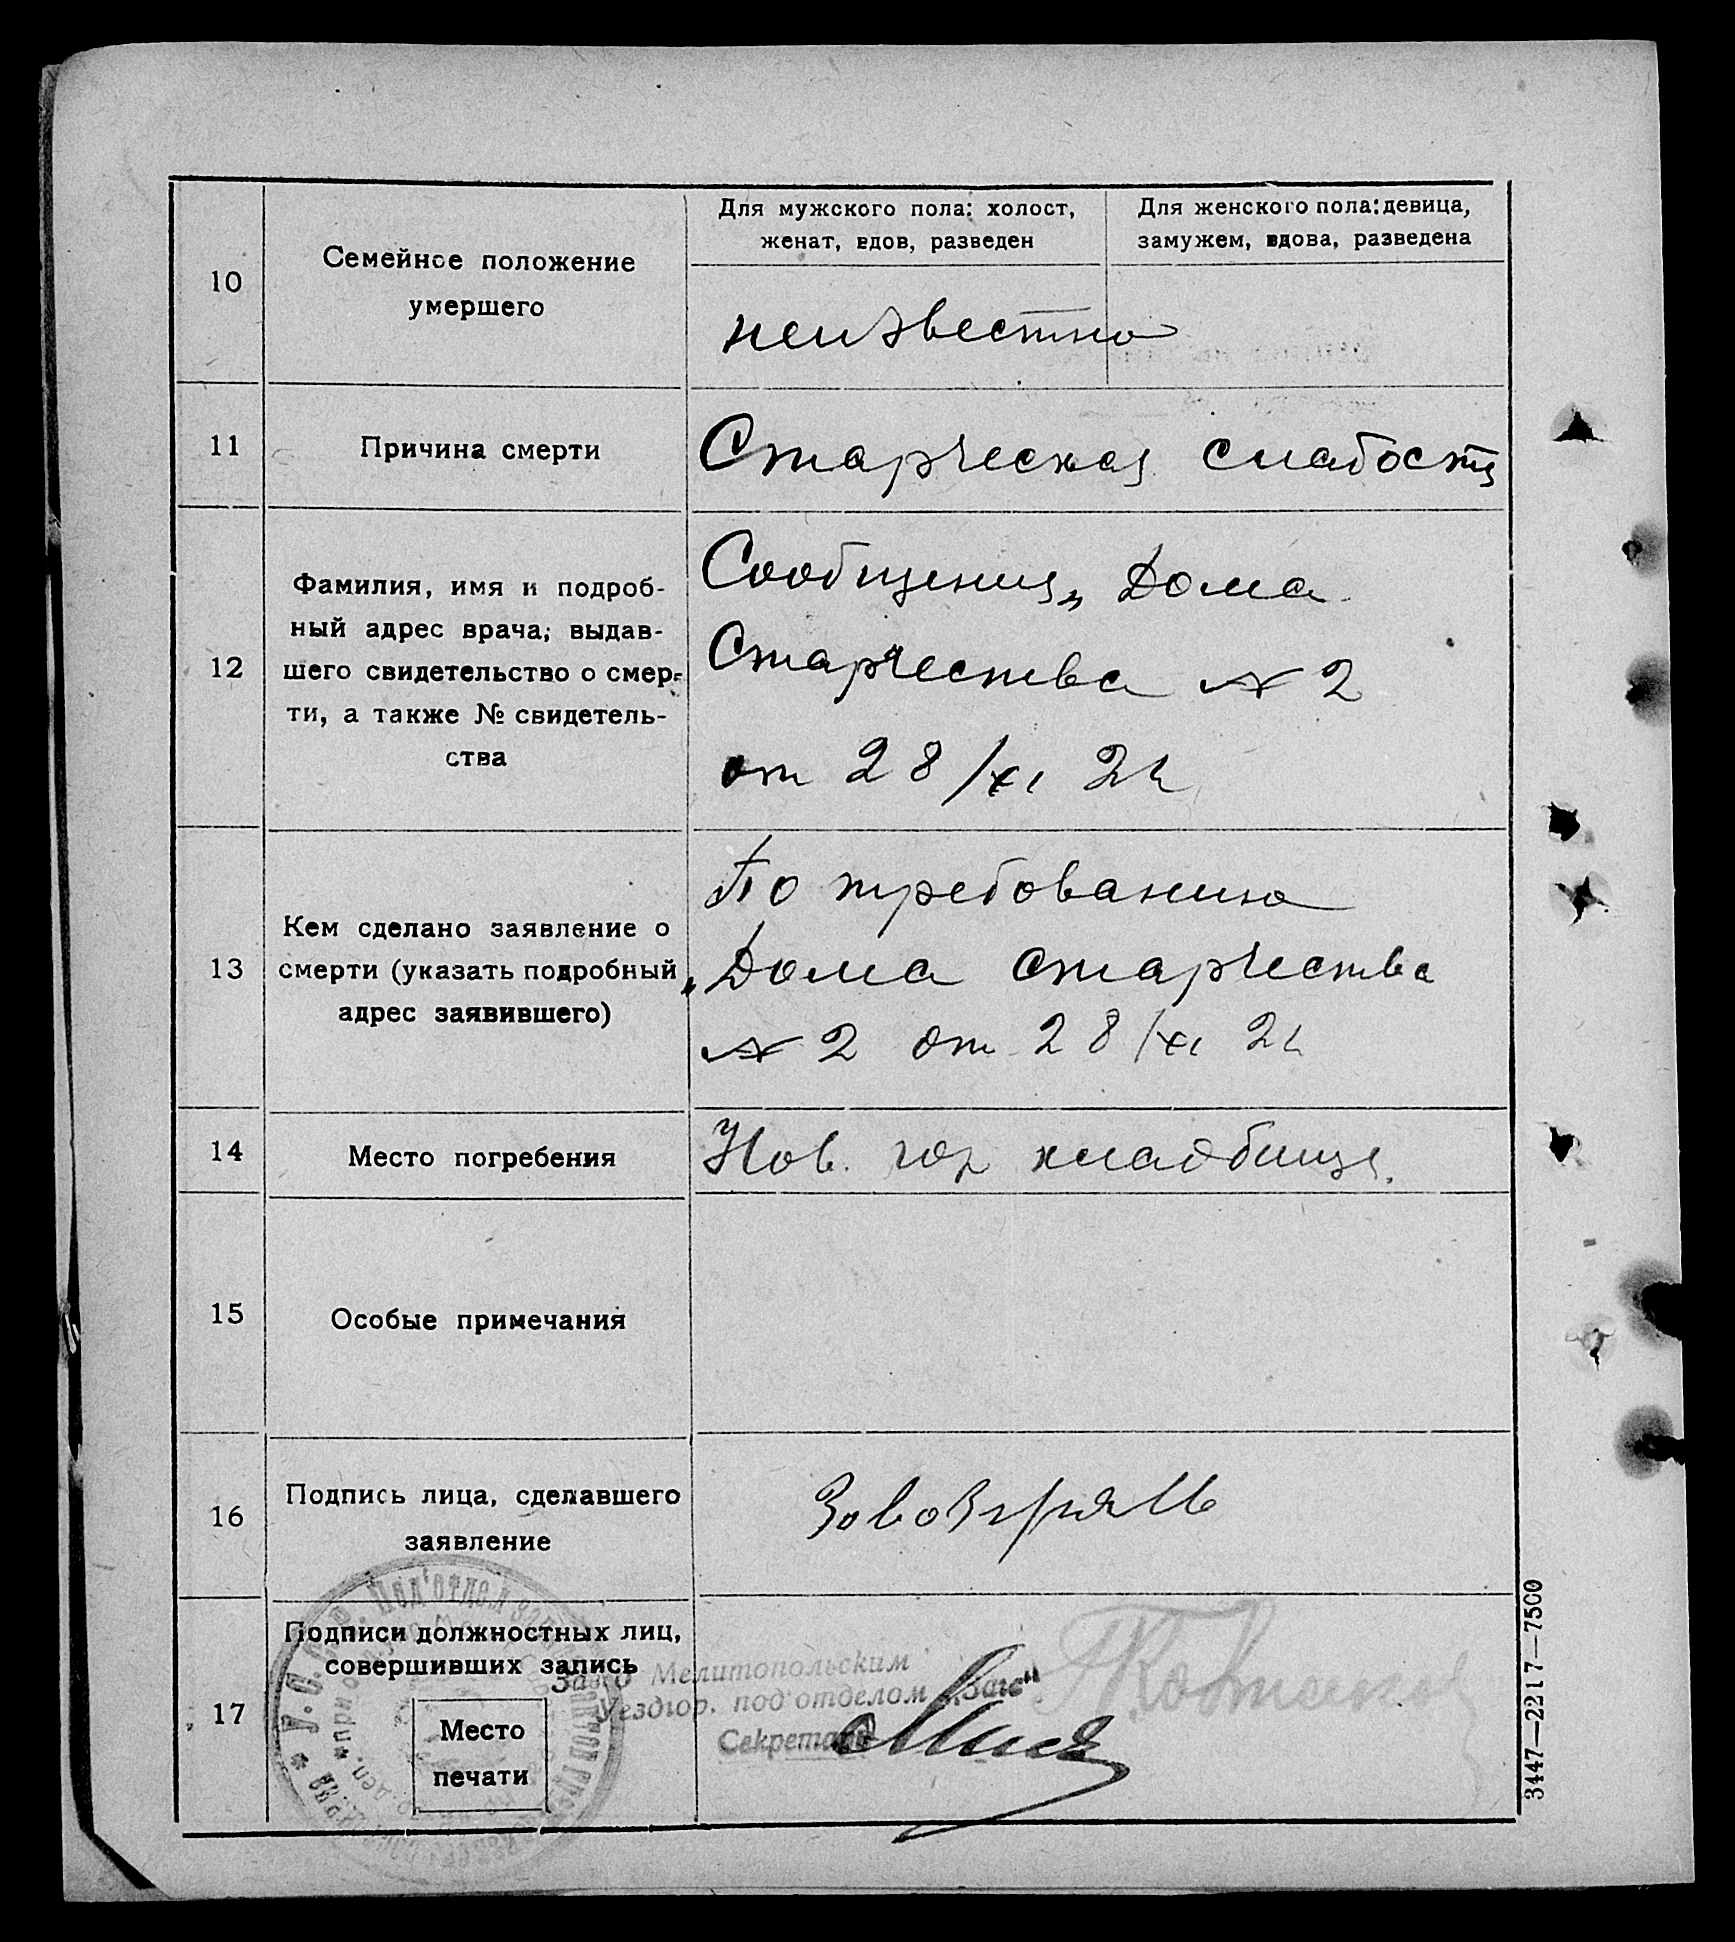 Для мужского пола: холост,
женат, вдов, разведен
Для женского пола: девица,
замужем, вдова, разведена
10
Семейное положение
умершего
неизвестно
11
Причина смерти
Старческая слабость
12
Фамилия, имя и подроб-
ный адрес врача, выдав-
шего свидетельство о смер-
ти, а также № свидетель-
ства
Сообщения „Дома
Старчества № 2
от 28/XI 24
13
Кем сделано заявление о
смерти (указать подробный
адрес заявившего)
По требованию
„Дома старчества
№ 2 от 28/XI 24
14
Место погребения
Нов. гор кладбище.
15
Особые примечания
16
Подпись лица, сделавшего
заявление
17
Подписи должностных лиц,
совершивших запись
Место
печати
Мелитопольским
под'отделом „Загс"
Секретарь
Под'отдел
3447—2217—7500